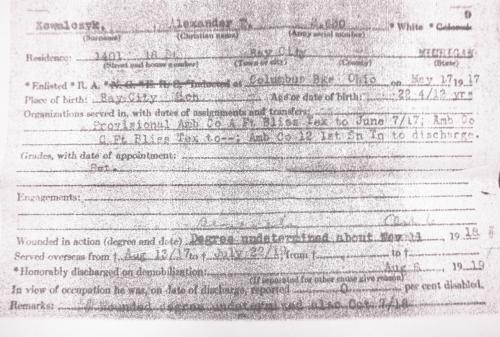 9
Kowalczyk, Alexander T. * White * Colored
(Surname) (Christian name) (Army serial number)
Residence: 1401 18 St. Bay City MICHIGAN
(Street and house number) (Town or city) (County) (State)
* Enlisted * R. A. * N. G. * E. R. C. * Inducted at Columbus Bks Ohio on May 17 19 17
Place of birth: Bay City Mich Age or date of birth: 22 4/12 yrs
Organizations served in, with dates of assignments and transfers:
Provisional Amb Co A Ft Bliss Tex to June 7/17; Amb Co
C Ft Bliss Tex to--; Amb Co 12 1st Sn Tn to discharge.
Grades, with date of appointment:
Pvt.
Engagements:
Wounded in action (degree and date) Degree undetermined about May 11, 19 18
Served overseas from † Aug 13/17 to † July 22/19 from † to †
* Honorably discharged on demobilization: Aug 19 19
(If separated for other cause give reason)
In view of occupation he was, on date of discharge, reported 0 per cent disabled.
Remarks: Wounded degree undetermined also Oct 7/18